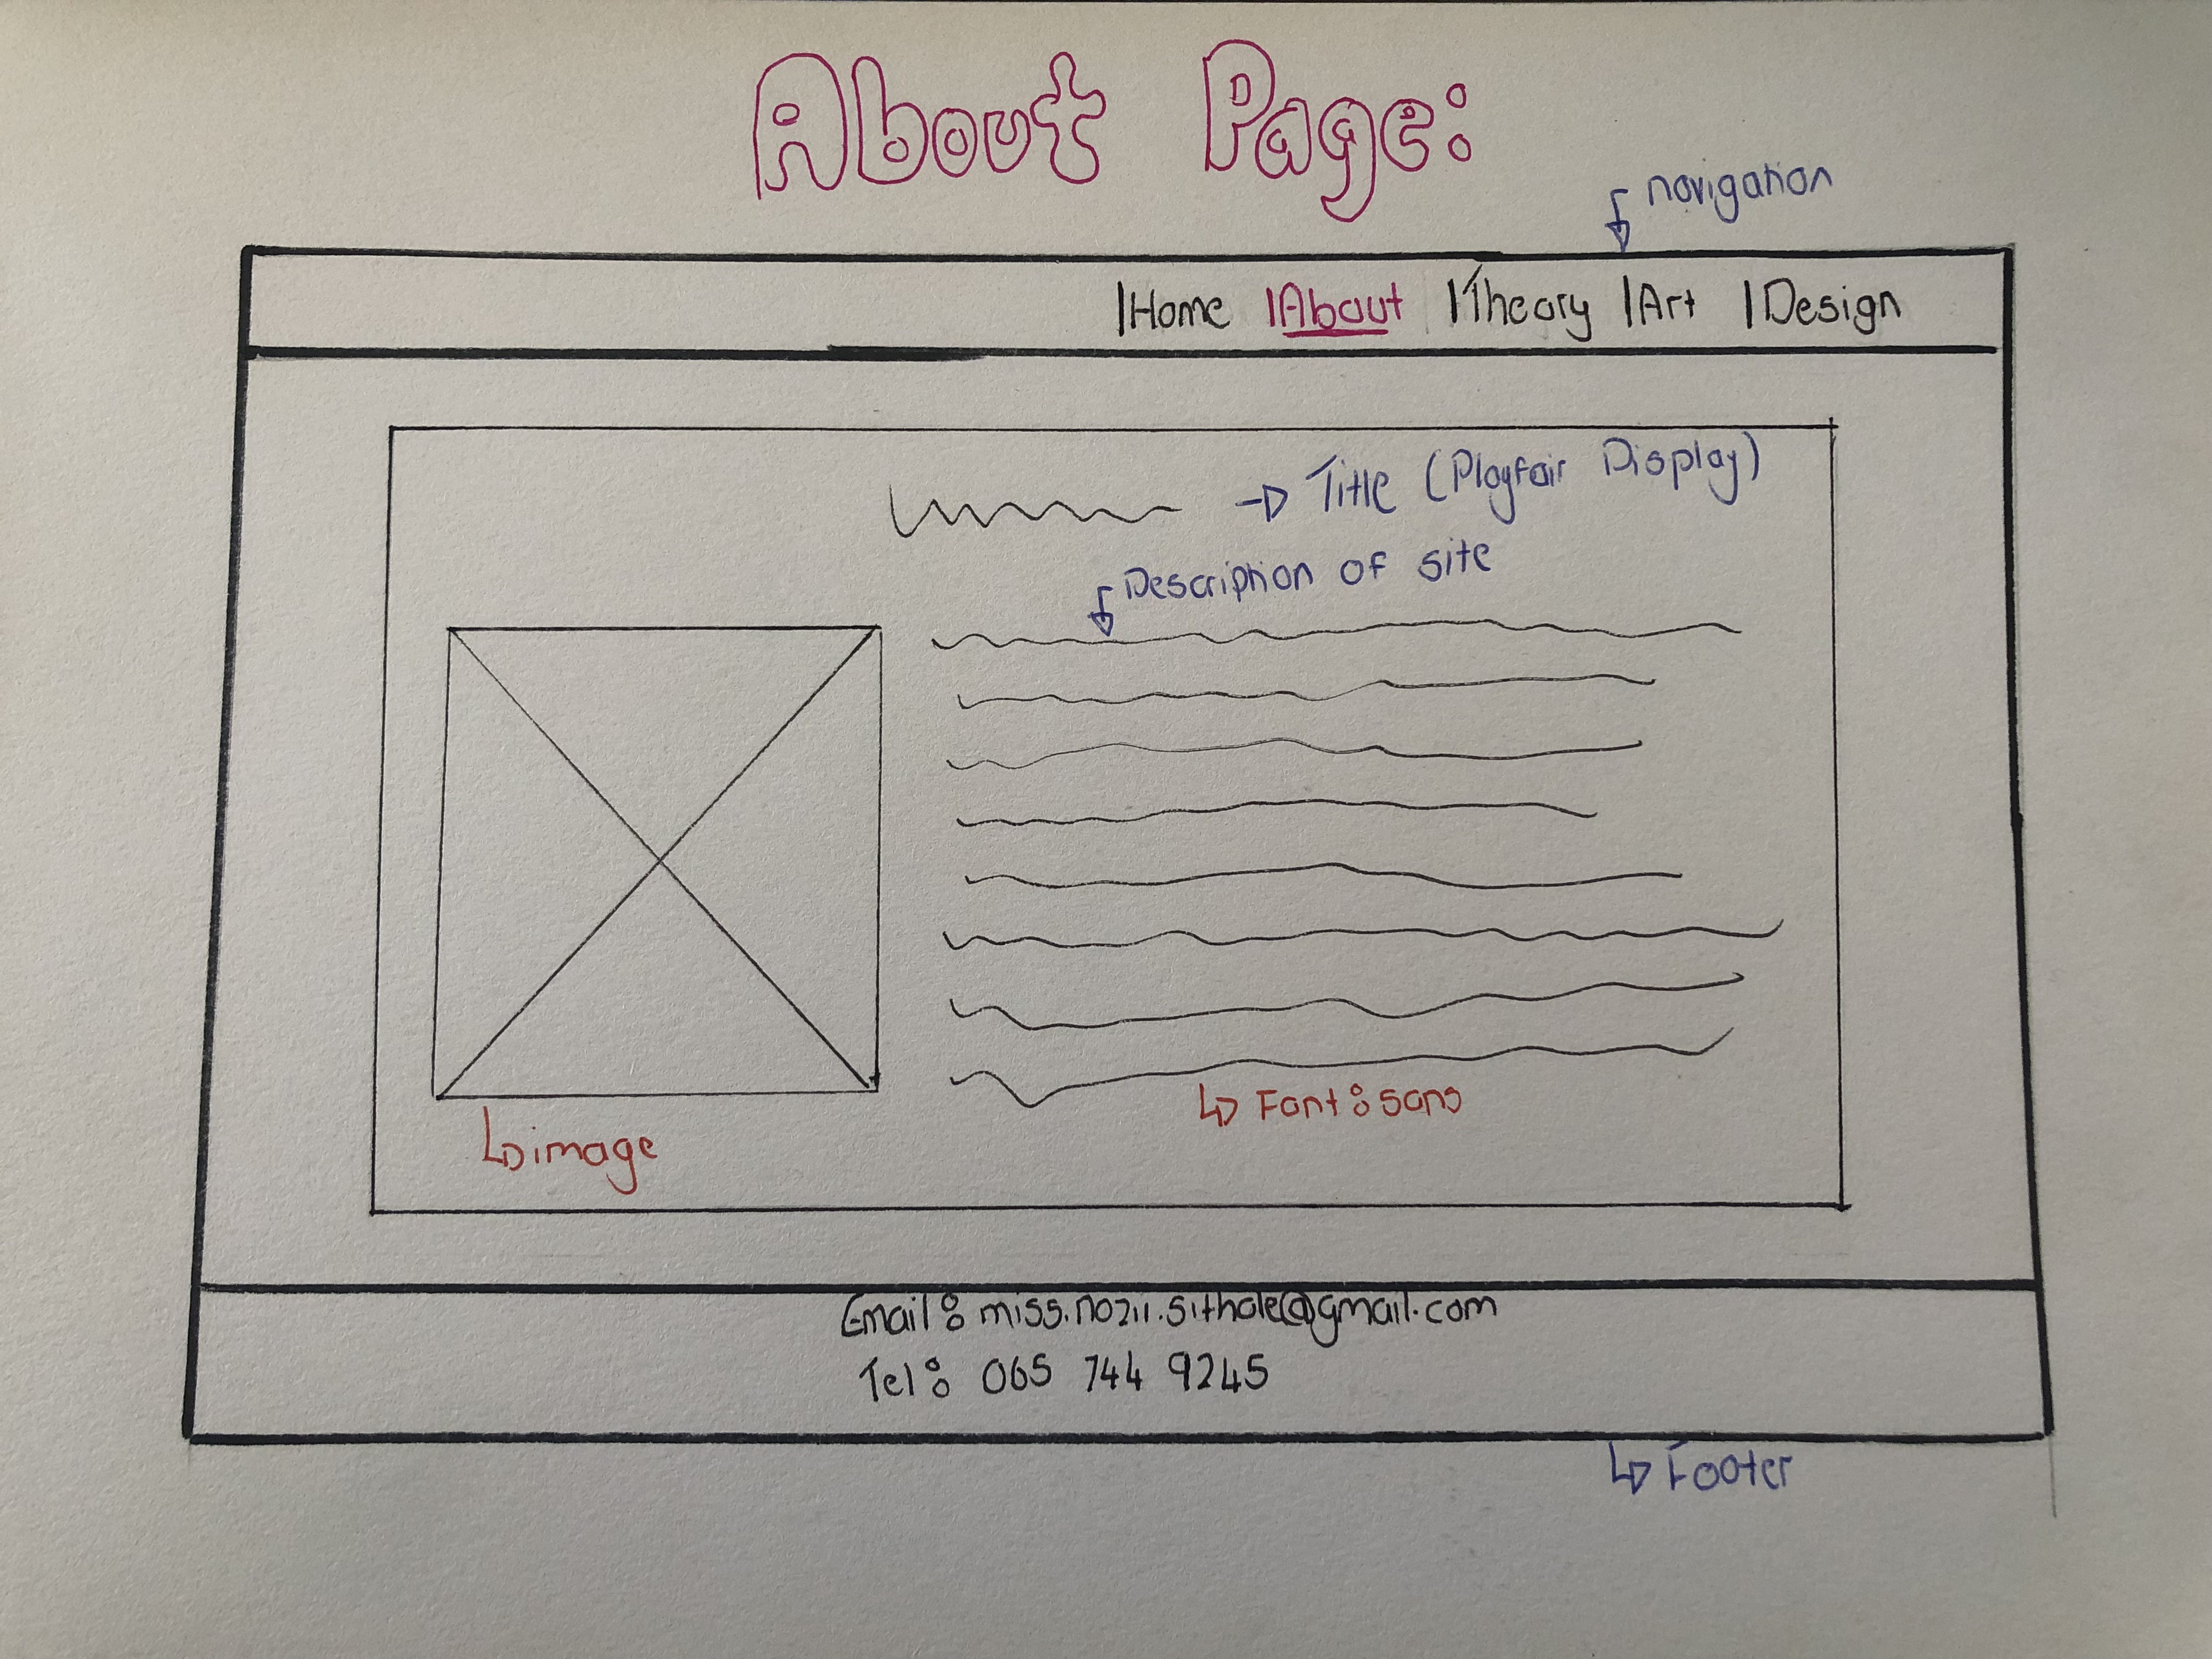 About Page:
navigation
|Home |About |Theory |Art |Design
Title (Playfair Display)
Description of site
Font: sans
image
Email: miss.nozii.sithole@gmail.com
Tel: 065 744 9245
Footer